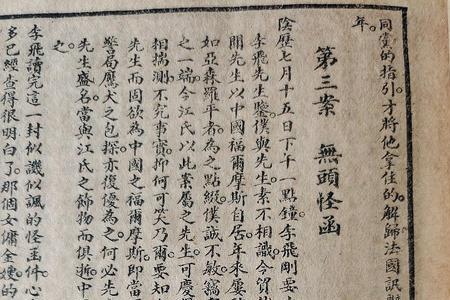 同黨的指引。才將他拿住的。解歸法國訊
年。
第三案 無頭怪函
陰歷七月十五日下午一點鐘。李飛剛要
李飛先生鑒。僕與先生素不相識。今貿
聞先生以中國福爾摩斯自居。年來屢
如亞森羅平者。為之點綴。僕誠不敏。竊
之一端。今江氏以此案屬之先生。可慶
相揣測。不究事實。抑何可笑乃爾。要知
先生而固欲為中國之福爾摩斯。即當
警局鷹犬之包探。亦優優為之。何必先
先生盛名。當與江氏之飾物而俱逝。中
之。
李飛讀完這一封似譏似諷的怪函。件心
多已經查得很明白了。那個女傭金嫂的